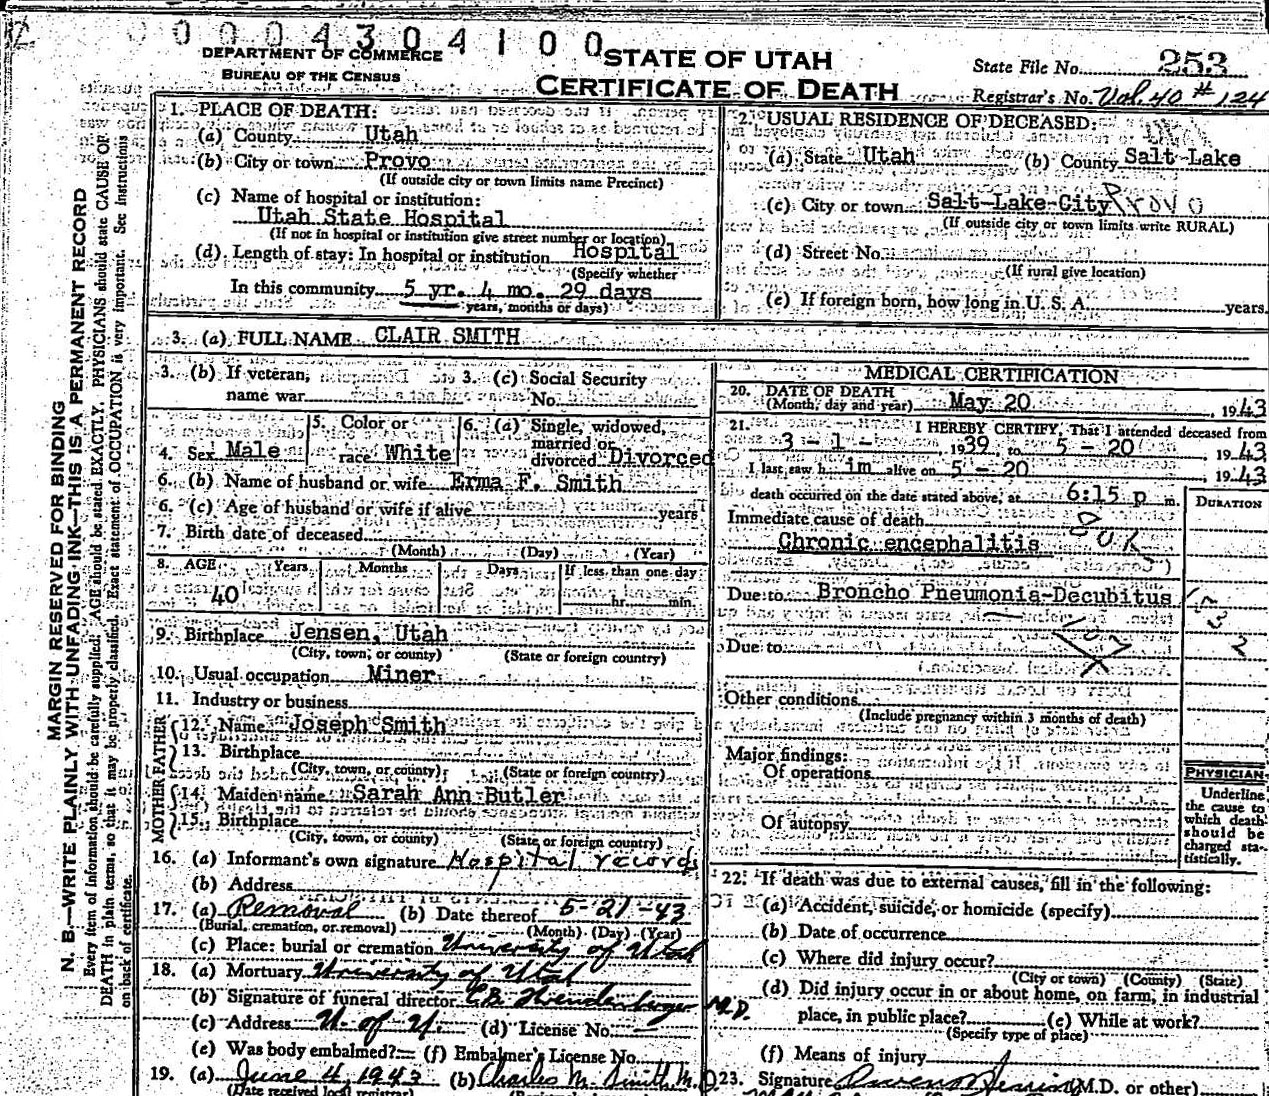 00004304100
DEPARTMENT OF COMMERCE
BUREAU OF THE CENSUS
STATE OF UTAH
CERTIFICATE OF DEATH
State File No. 253
Registrar's No. Vol. 40 # 124
MARGIN RESERVED FOR BINDING
N. B.—WRITE PLAINLY WITH UNFADING INK—THIS IS A PERMANENT RECORD
Every item of information should be carefully supplied. AGE should be stated EXACTLY. PHYSICIANS should state CAUSE OF
DEATH in plain terms, so that it may be properly classified. Exact statement of OCCUPATION is very important. See instructions
on back of certificate.
1. PLACE OF DEATH:
(a) County Utah
(b) City or town Provo
(If outside city or town limits name Precinct)
(c) Name of hospital or institution:
Utah State Hospital
(If not in hospital or institution give street number or location)
(d) Length of stay: In hospital or institution Hospital
(Specify whether
In this community 5 yr. 4 mo. 29 days
years, months or days)
2. USUAL RESIDENCE OF DECEASED:
(a) State Utah (b) County Salt Lake
(c) City or town Salt-Lake-City Provo
(If outside city or town limits write RURAL)
(d) Street No.
(If rural give location)
(e) If foreign born, how long in U. S. A. years.
3. (a) FULL NAME CLAIR SMITH
3. (b) If veteran,
name war
3. (c) Social Security
No.
4. Sex Male
5. Color or
race White
6. (a) Single, widowed,
married or
divorced Divorced
6. (b) Name of husband or wife Erma F. Smith
6. (c) Age of husband or wife if alive years
7. Birth date of deceased
(Month) (Day) (Year)
8. AGE Years Months Days If less than one day
40 hr. min.
9. Birthplace Jensen, Utah
(City, town, or county) (State or foreign country)
10. Usual occupation Miner
11. Industry or business
FATHER
12. Name Joseph Smith
13. Birthplace
(City, town, or county) (State or foreign country)
MOTHER
14. Maiden name Sarah Ann Butler
15. Birthplace
(City, town, or county) (State or foreign country)
16. (a) Informant's own signature Hospital records
(b) Address
17. (a) Removal (b) Date thereof 5-21-43
(Burial, cremation, or removal) (Month) (Day) (Year)
(c) Place: burial or cremation University of Utah
18. (a) Mortuary University of Utah
(b) Signature of funeral director M.D.
(c) Address U. of U. (d) License No.
(e) Was body embalmed? (f) Embalmer's License No.
19. (a) June 4 1943 (b) Charles M. Smith M.D.
(Date received local registrar)
MEDICAL CERTIFICATION
20. DATE OF DEATH
(Month, day and year) May 20, 1943
21. I HEREBY CERTIFY, That I attended deceased from
3 - 1 - 1939, to 5 - 20 1943
I last saw h im alive on 5 - 20 1943
death occurred on the date stated above, at 6:15 p m.
DURATION
Immediate cause of death
Chronic encephalitis
Due to Broncho Pneumonia-Decubitus
Due to
Other conditions
(Include pregnancy within 3 months of death)
Major findings:
Of operations
Of autopsy
PHYSICIAN
Underline
the cause to
which death
should be
charged sta-
tistically.
22. If death was due to external causes, fill in the following:
(a) Accident, suicide, or homicide (specify)
(b) Date of occurrence
(c) Where did injury occur?
(City or town) (County) (State)
(d) Did injury occur in or about home, on farm, in industrial
place, in public place? (e) While at work?
(Specify type of place)
(f) Means of injury
23. Signature (M.D. or other)